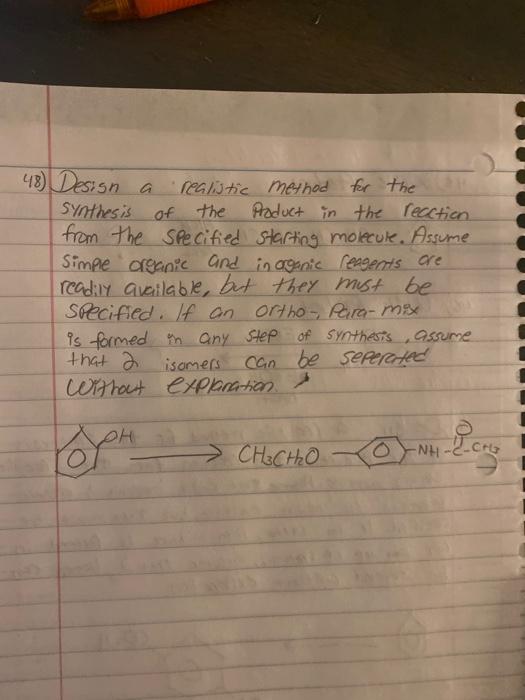 48) Design a realistic method for the
synthesis of the Product in the reaction
from the specified starting molecule. Assume
simple organic and inorganic reagents are
readily available, but they must be
specified. If an ortho-, Para- mix
is formed in any step of synthesis, assume
that 2 isomers can be seperated
without explanation.
OH
CH3CH2O
-NH-C-CH3
O